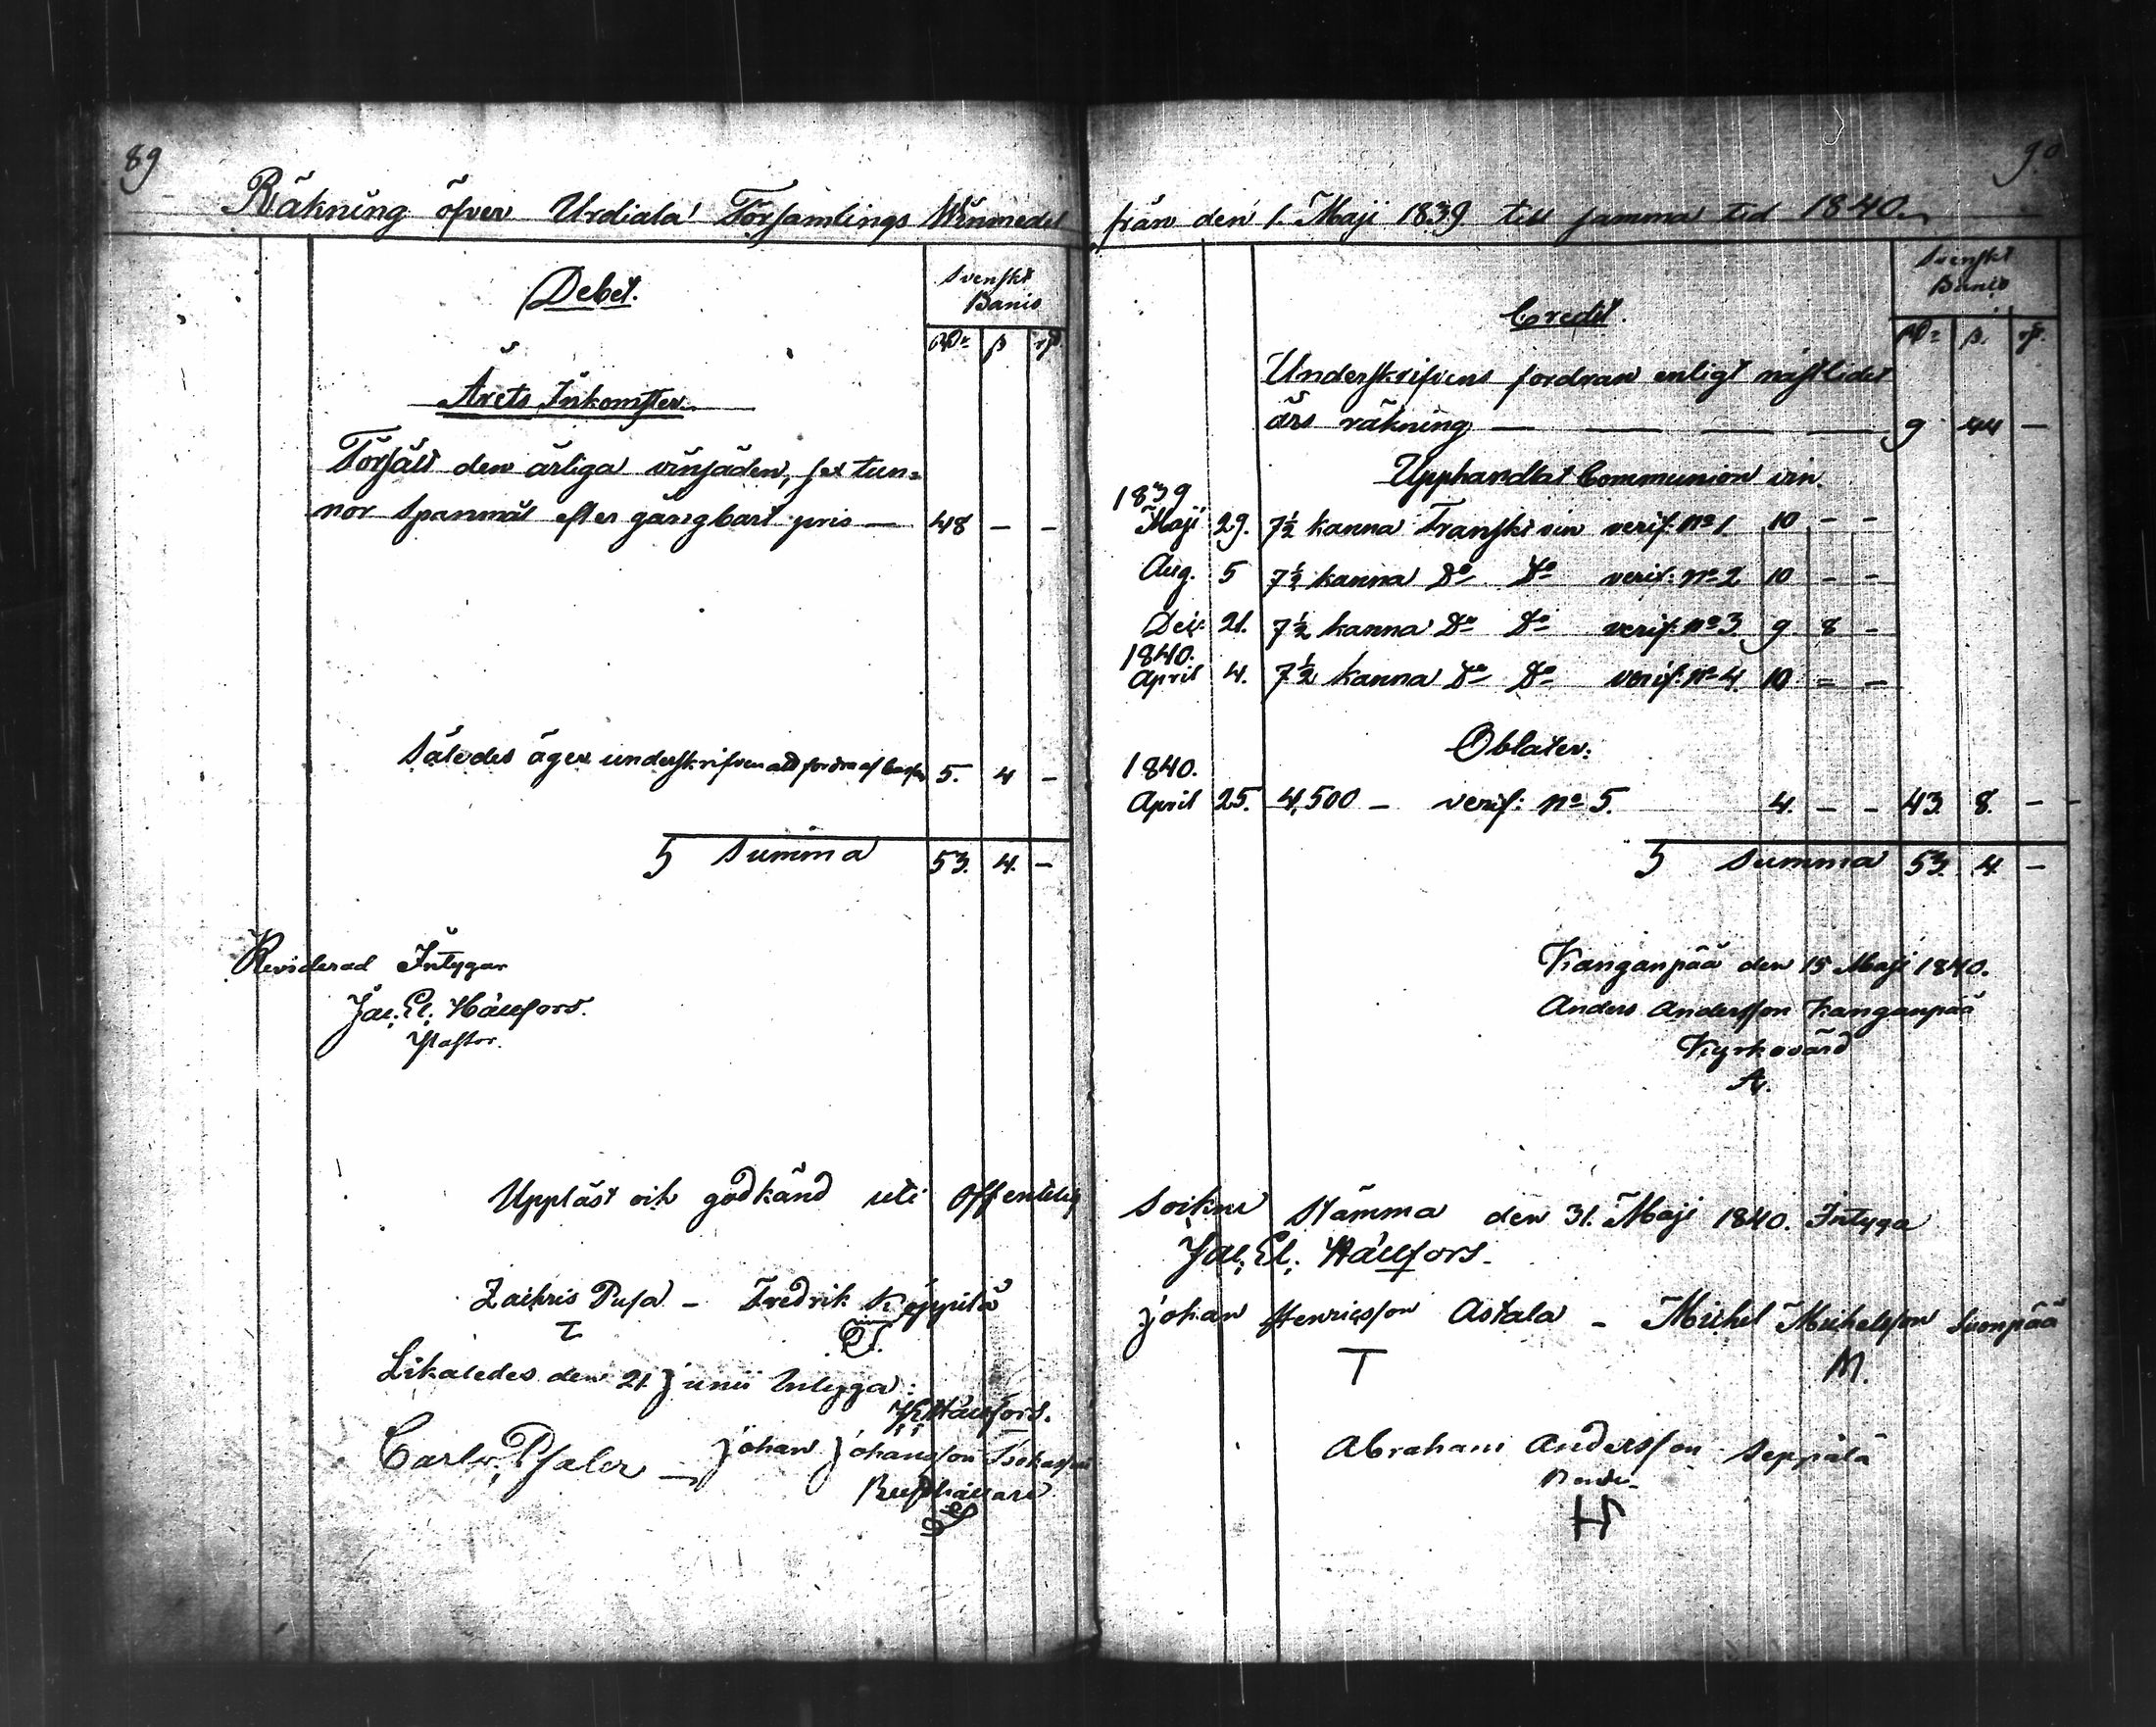 89
Räkning öfver Urdiala Församlings Winmedel
Debet.
Svenskt
Banco
RDr ß rst
Årets Inkomster.
Försåld den årliga vinsäden, sex tun=
nor Spanmål efter gångbart pris — 48 — —
Således äger underskrifven att fordra af 5. 4 —
S Summa 53. 4. —
Reviderad Intygar
Jac. El. Hällfors.
Pastor.
Uppläst och godkänd uti offentlig
Zachris Pusa – Fredrik Köppilä
T
Likaledes den 21 Junii Intyga:
Hällfors.
Carl Psaler — Johan Johansson
Rusthållare
90
från den 1. Maji 1839 till samma tid 1840.
Credit.
Svenskt
Banco
RDr ß. rst.
Underskrifvens fordran enligt nästledet
års räkning — — — — 9 44 —
Upphandlat Communion vin.
1839
Maji 29. 7½ kanna Franskt vin verif: No 1. 10 — —
Aug. 5 7½ kanna Do Do verif: No 2 10 — —
Dec: 21. 7½ kanna Do Do verif: No 3. 9 8 —
1840.
April 4. 7½ kanna Do Do verif: No 4. 10 = —
Oblater:
1840.
April 25. 4,500 — verif: No 5. 4. — — 43 8. —
S Summa 53. 4. —
Kanganpää den 15 Maji 1840.
Anders Andersson Kanganpää
Kyrkovärd
Sockne Stämma den 31. Maji 1840. Intyga
Jac. El. Hällfors.
Johan Henricsson Astala – Michel Michelsson Suonpää
T M.
Abraham Andersson Seppälä